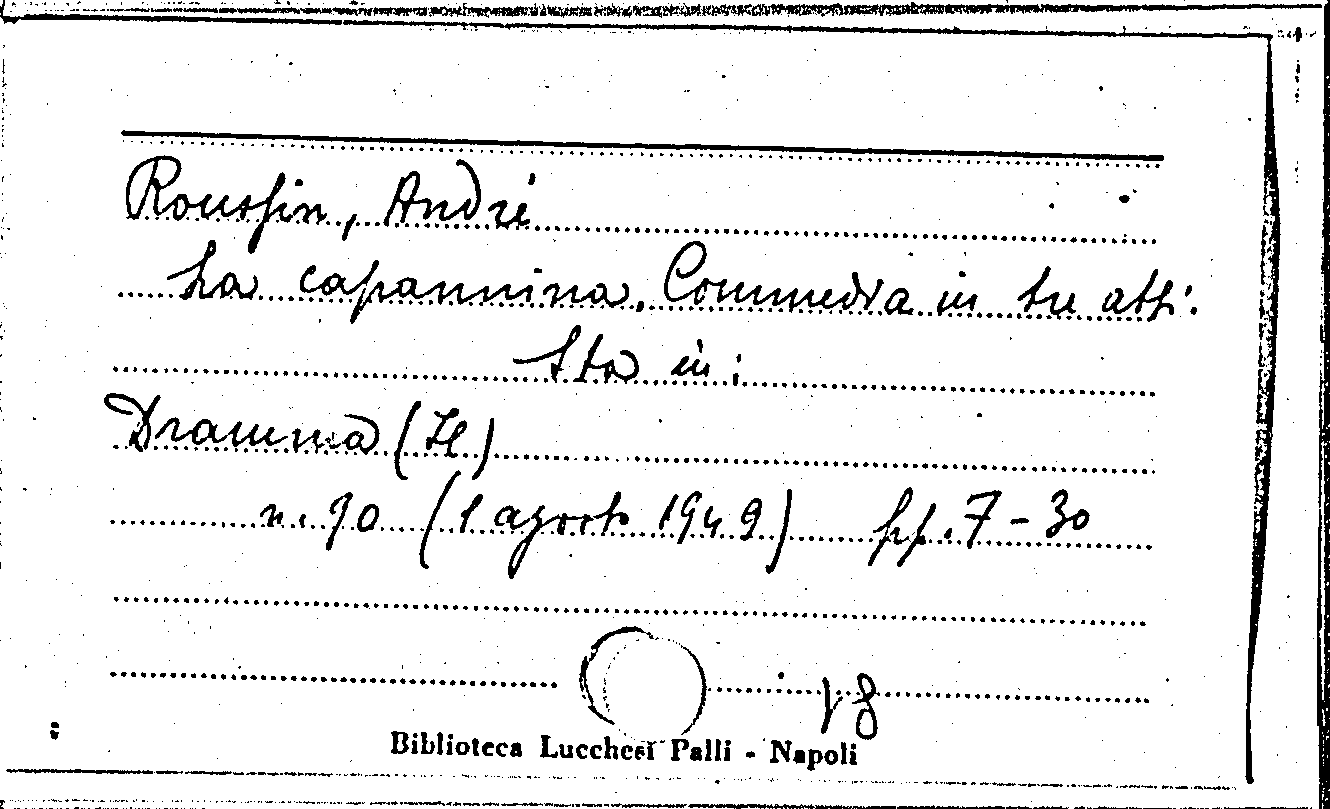 Roussin, André
La capannina. Commedia in tre atti.
Sta in:
Dramma (Il)
n. 90 (1 agosto 1949) pp. 7-30
Biblioteca Lucchesi Palli - Napoli